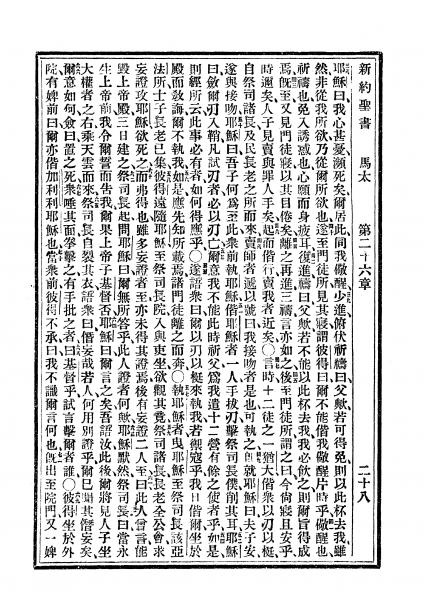 新約聖書　馬太　第二十六章　二十八
耶穌曰我心甚憂瀕死矣爾居此同我儆醒少進俯伏祈禱曰父歟若可得免則以此杯去我雖
然非從我所欲乃從爾所欲也遂至門徒所見其寢謂彼得曰爾不能偕我儆醒片時乎儆醒也
祈禱也免入誘惑也心願而身疲耳復進禱曰父歟若不能以此杯去我我必飲之則爾旨得成
焉旣至又見門徒寢以其目倦矣離之再進三禱言亦如之後至門徒所謂之曰今尙寢且安乎
時邇矣人子見賣與罪人手矣起而偕行賣我者近矣〇言時十二徒之一猶大偕衆以刃以梃
自祭司諸長及民長老之所而來賣師者遞以號曰我接吻者是也可執之卽就耶穌曰夫子安
遂與接吻耶穌曰吾子何爲至此衆前執耶穌偕耶穌者一人手拔刃擊祭司長僕削其耳耶穌
曰斂爾刃入鞘凡試刃者必以刃亡爾意我不能此時祈父爲我遣十二營有餘之使者乎如是
則經所云此事必有者如何得應乎〇遂語衆曰爾以刃以梃來執我若禦寇乎我日偕爾坐於
殿而敎誨爾不執我如是應先知所載焉諸門徒離之而奔〇執耶穌者曳耶穌至祭司長該亞
法所士子長老已集彼得遠隨耶穌至祭司長院入與吏坐欲觀其竟祭司諸長長老全公會求
妄證攻耶穌欲死之而弗得也雖多妄證者至亦未得其證焉後有妄證二人至曰此人曾言能
毀上帝殿三日建之祭司長起問耶穌曰爾無所答乎此人證者何歟耶穌默然祭司長曰當永
生上帝前我令爾誓而吿我爾果上帝子基督否耶穌曰爾言之矣吾語汝此後爾將見人子坐
大權者之右乘天雲而來祭司長自裂其衣語衆曰僭妄哉若人何用別證乎爾已聞其僭妄矣
爾意如何僉曰置之死衆唾其面拳擊之有手批之者曰基督乎試言擊爾者誰〇彼得坐於外
院有婢前曰爾亦偕加利利耶穌也當衆前彼得不承曰我不識爾言何也旣出至院門又一婢